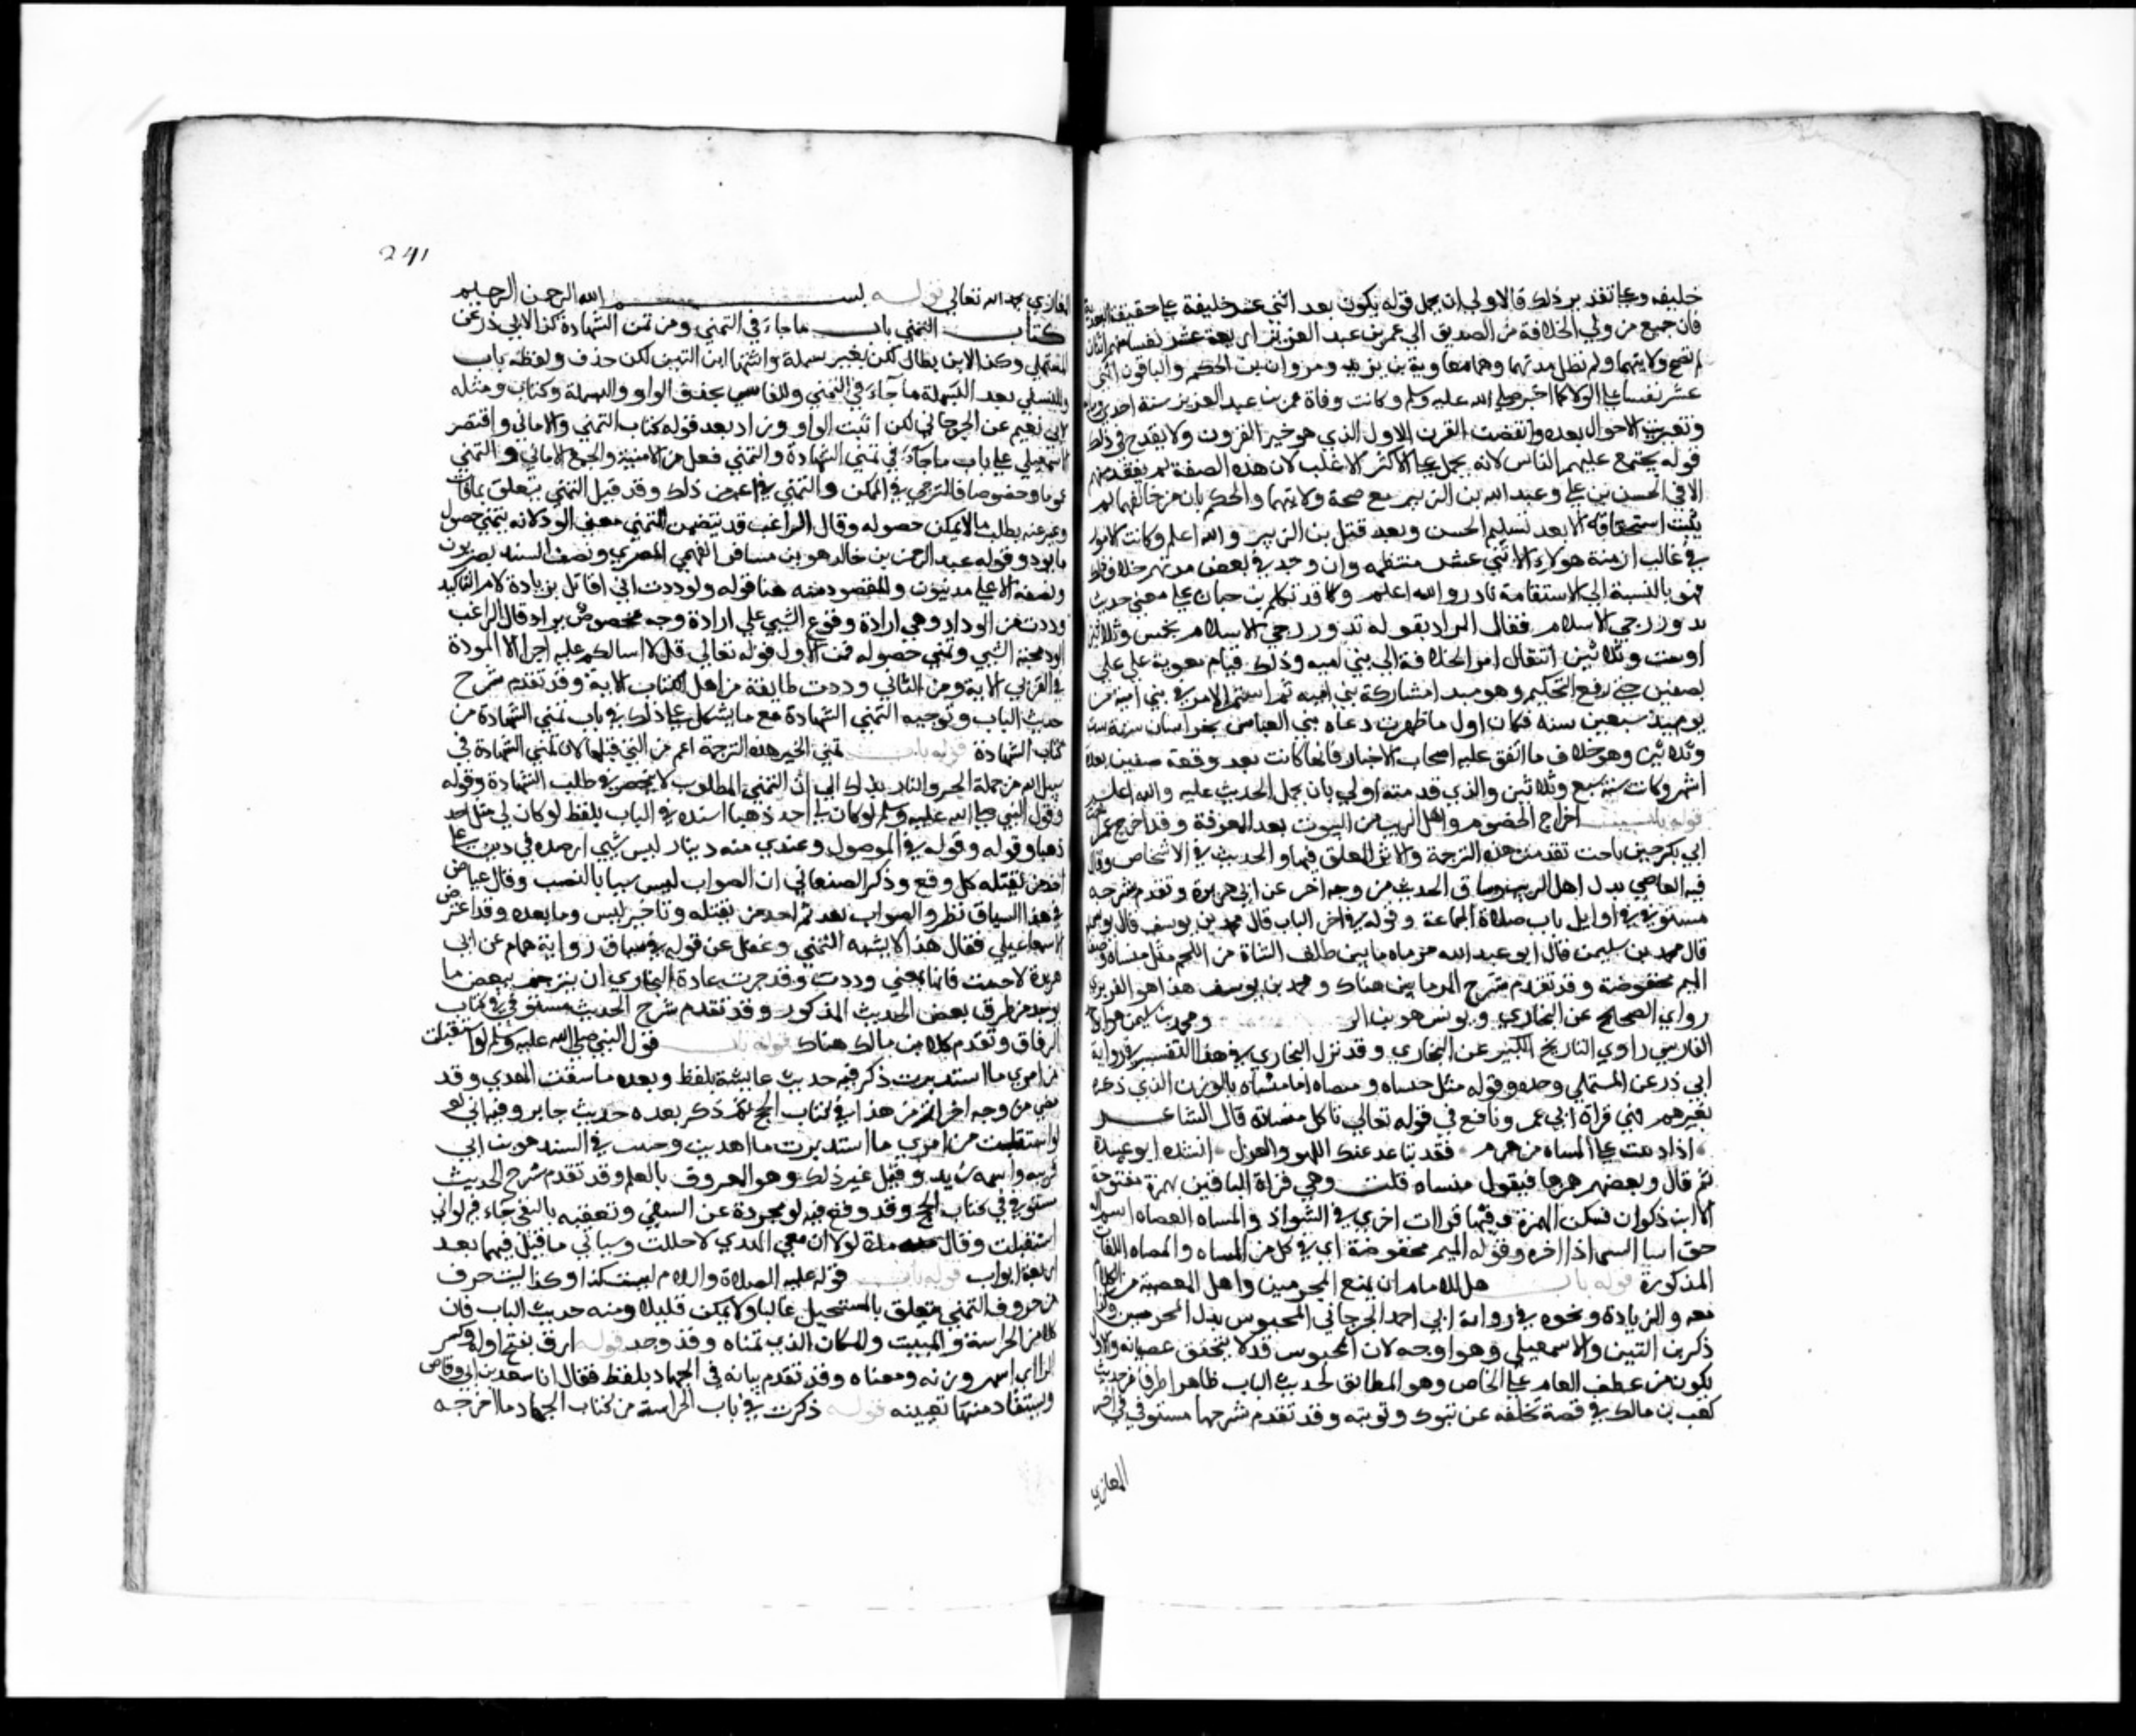 خليفه وعلى تقدير ذلك فالاولى ان يحمل قوله يكون بعد اثنى عشر خليفة على حقيقة البعدية
فان جميع من ولي الخلافة من الصديق الي عمر بن عبد العزيز اربعة عشر نفسا منهم اثنان
لم تصح ولايتهما ولم تطل مدتهما وهما معاوية بن يزيد ومروان بن الحكم والباقون اثنى
عشر نفسا على الولا كما اخبر صلى الله عليه وسلم وكانت وفاة عمر بن عبد العزيز سنة احدي وماية
وتغيرت الاحوال بعده وانقضت القرن الاول الذي هو خير القرون ولا يقدح في ذلك
قوله يجتمع عليهم الناس لانه يحمل على الاكثر الاغلب لان هذه الصفة لم يفقد منهم
الا في الحسن بن علي وعبد الله بن الزبير مع صحة ولايتهما والحكم بان من خالفهما لم
يثبت استحقاقه الا بعد تسليم الحسن وبعد قتل بن الزبير والله اعلم وكانت الامور
في غالب ازمنة هولاء الاثني عشر منتظمه وان وجد في بعض مدتهم خلاف ذلك
فهو بالنسبة الي الاستقامة نادر والله اعلم وكا قد تكلم بن حبان على معني حديث
تدور رحي الاسلام فقال المراد بقوله تدور رحي الاسلام بخمس وثلاثين
او ست وثلاثين انتقال امر الخلافة الي بني اميه وذلك قيام معوية على علي
بصفين حتي رفع التحكيم وهو مبدا مشاركة بني اميه ثم استمر الامر في بني امية من
يوميذ سبعين سنه فكان اول ما ظهرت دعاة بني العباس بخراسان سنة ست
وثلاثين وهو خلاف ما اتفق عليه اصحاب الاخبار فانها كانت بعد وقعة صفين بعدة
اشهر وكانت سنة سبع وثلاثين والذي قدمته اولي بان يحمل الحديث عليه والله اعلم
قوله باب اخراج الخصوم واهل الريب من البيوت بعد المعرفة وقد اخرج عمر اخت
ابي بكر حين ناحت تقدمت هذه الترجمة والاثر المعلق فيها والحديث في الاشخاص وقال
فيه المعاصي بدل اهل الريب وساق الحديث من وجه اخر عن ابي هريرة وتقدم شرحه
مستوفي في اوايل باب صلاة الجماعة وقوله في اخر الباب قال محمد بن يوسف قال يونس
قال محمد بن سليمن قال ابو عبد الله مرماه ما بين ظلف الشاة من اللحم مثل منساه وميضاة
الميم مخفوضة وقد تقدم شرح المرماتين هناك ومحمد بن يوسف هذا هو الفربري
راوي الصحيح عن البخاري ويونس هو بن الر ومحمد بن سليمن هو ابو احمد
الفارسي راوي التاريخ الكبير عن البخاري وقد نزل البخاري في هذا التفسير في رواية
ابي ذر عن المستملي وحده وقوله مثل منساه وميضاه اما منساه بالوزن الذي ذكره
بغير همر فهي قراة ابي عمر ونافع في قوله تعالي تاكل منساته قال الشاعر
اذا دببت على المنساه من هرم فقد تباعد عنك اللهو والغزل انشده ابو عبيدة
ثم قال وبعضهم همرها فيقول منساه قلت وهي قراة الباقين بهمزة مفتوحة
الا ابن ذكوان فسكن الهمزة وفيها قراات اخري في الشواذ والمنساه العصاه اسم اله
من انسا الشي اذا اخره وقوله الميم مخفوضة اي في كل من المنساه والميضاه اللغات
المذكورة قوله باب هل للامام ان يمنع المجرمين واهل المعصية من الكلام
معه والزيادة ونحوه في رواية ابي احمد الجرجاني المحبوس بدل المجرمين وكذا
ذكر بن التين والاسمعيلي وهو اوجه لان المحبوس قد لا يتحقق عصيانه والاول
يكون من عطف العام على الخاص وهو المطابق لحديث الباب ظاهرا طرفا من حديث
كعب بن مالك في قصة تخلفه عن تبوك وتوبته وقد تقدم شرحها مستوفي في اخر
المغازي
241
المغازي بحمد الله تعالي قوله بسم الله الرحمن الرحيم
كتاب التمني باب ما جاء في التمني ومن تمن الشهادة كذا لابي ذر عن
المستملي وكذا لابن بطال لكن بغير بسملة واثبتها ابن التين لكن حذف ولفظه باب
وللنسفي بعد البسملة ما جاء في التمني وللقابسي بحذف الواو والبسملة وكتاب ومثله
لابي نعيم عن الجرجاني لكن اثبت الواو وزاد بعد قوله كتاب التمني والاماني واقتصر
الاسمعيلي على باب ما جاء في تمني الشهادة والتمني تفعل من الامنية والجمع الاماني والتمني
عموما وخصوصا فالترجي في الممكن والتمني في اعم من ذلك وقد قيل التمني يتعلق بما فات
وعبر عنه بطلب ما لا يمكن حصوله وقال الراغب قد يتضمن التمني معني الود لانه يتمني حصول
ما يود وقوله عبد الرحمن بن خالد هو بن مسافر الفهمي المصري ونصف السند بصريون
ونصفه الاعلي مدنيون والمقصود منه هنا قوله ولوددت اني اقاتل بزيادة لام التاكيد
وددت من الوداد وهي ارادة وقوع الشي علي ارادة وجه مخصوص يراد قال الراغب
الود محبة الشي وتمني حصوله فمن الاول قوله تعالي قل لا اسالكم عليه اجرا الا المودة
في القربي الاية ومن الثاني وددت طايفة من اهل الكتاب الاية وقد تقدم شرح
حديث الباب وتوجيه التمني الشهادة مع ما يشكل على ذلك في باب تمني الشهادة من
كتاب الشهادة قوله باب تمني الخير هذه الترجمة اعم من التي قبلها لان تمني الشهادة في
سبيل الله من جملة الخير واشار بذلك الي ان التمني المطلوب لا ينحصر في طلب الشهادة وقوله
وقول النبي صلى الله عليه وسلم لو كان لي احد ذهبا اسنده في الباب بلفظ لو كان لي مثل احد
ذهبا وقوله وقوله في الموصول وعندي منه دينار ليس شي ارصده في دين علي
اجد من يقبله كل وقع وذكر الصنعاني ان الصواب ليس شيا بالنصب وقال عياض
في هذا السياق نظر والصواب بعد ثم اجد من يقبله وتاخير ليس وما بعده وقد اعترض
الاسماعيلي فقال هذا لا يشبه التمني وغفل عن قوله في سياق رواية همام عن ابي
هريرة لاحببت فانها بمعني وددت وقد جرت عادة البخاري ان يترجم ببعض ما
يوجد من طرق بعض الحديث المذكور وقد تقدم شرح الحديث مستوفي في كتاب
الرقاق وتقدم كلام بن مالك هناك قوله باب قول النبي صلى الله عليه وسلم لو استقبلت
من امري ما استدبرت ذكر فيه حديث عايشة بلفظ وبعده ما سقت الهدي وقد
مضي من وجه اخر اتم من هذا في كتاب الحج ثم ذكر بعده حديث جابر وفيه اني لو
لو استقبلت من امري ما استدبرت ما اهديت وحبيب في السند هو بن ابي
قريبه واسمه زيد وقيل غير ذلك وهو المعروف بالمعلم وقد تقدم شرح الحديث
مستوفي في كتاب الحج وقد وقع فيه لو مجردة عن النفي وتعقبه بالنفي جاء فيه لو اني
استقبلت وقال لولا ان معي الهدي لاحللت وسياتي ما قيل فيهما بعد
اربعة ابواب قوله باب قوله عليه الصلاة والسلام ليت كذا وكذا ليت حرف
من حروف التمني يتعلق بالمستحيل غالبا ولا يمكن قليلا ومنه حديث الباب فان
كلا من الحراسة والمبيت والمكان الذي تمناه وقد وجد قوله ارق بفتح اوله وكسر
الراي اسهر وزنه ومعناه وقد تقدم بيانه في الجهاد بلفظ فقال انا سعد بن ابي وقاص
ويستفاد منها تعيينه قوله ذكرت في باب الحراسة من كتاب الجهاد ما اخرجه